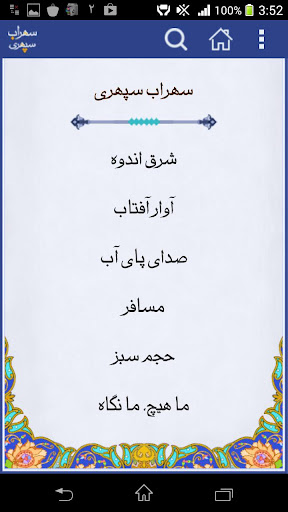 ۲ 100% 3:52
سهراب
سپهری
سهراب سپهری
شرق اندوه
آوار آفتاب
صدای پای آب
مسافر
حجم سبز
ما هیچ، ما نگاه